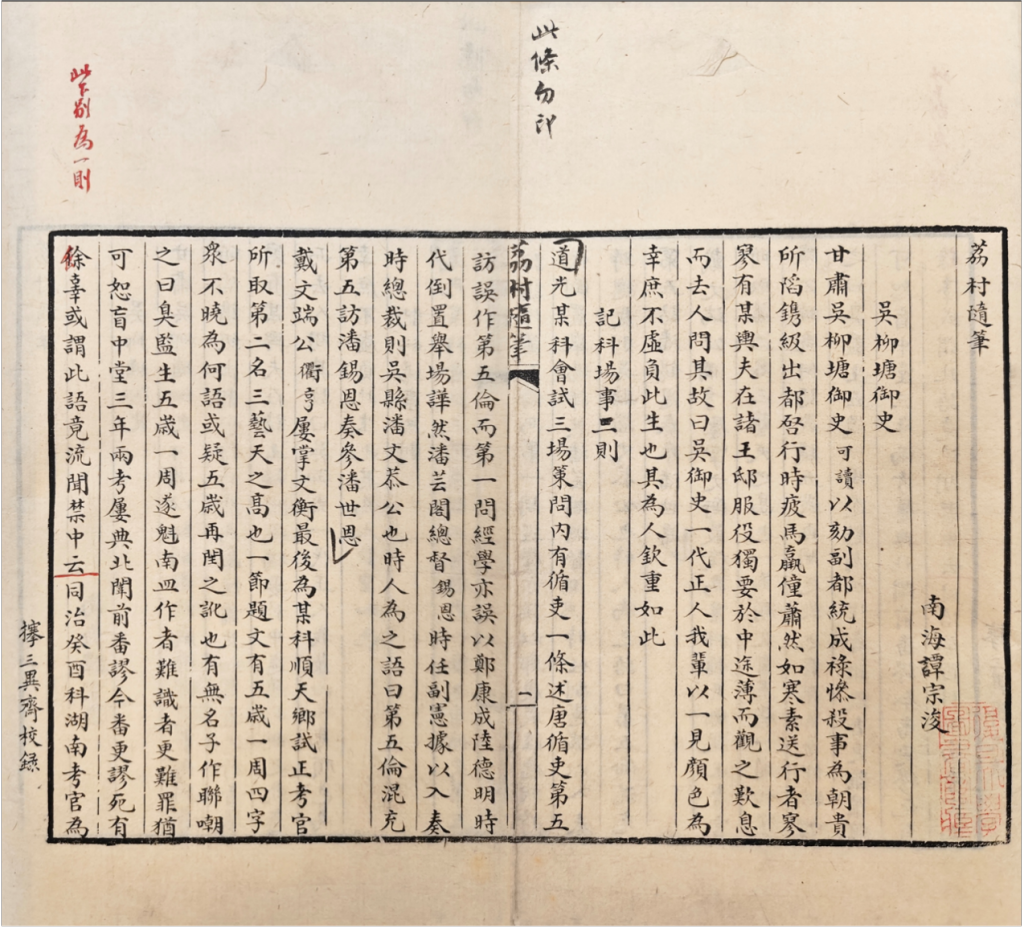 此條勿印
此下別為一則
荔村隨筆
南海譚宗浚
吳柳塘御史
甘肅吳柳塘御史可讀以劾副都統成祿慘殺事為朝貴
所陷鐫級出都啓行時疲馬羸僮蕭然如寒素送行者寥
寥有某輿夫在諸王邸服役獨要於中途薄而觀之歎息
而去人問其故曰吳御史一代正人我輩以一見顏色為
幸庶不虛負此生也其為人欽重如此
記科場事二則
道光某科會試三場策問內有循吏一條述唐循吏第五
荔村隨筆
一
訪誤作第五倫而第一問經學亦誤以鄭康成陸德明時
代倒置舉場譁然潘芸閣總督錫恩時任副憲據以入奏
時總裁則吳縣潘文恭公也時人為之語曰第五倫混充
第五訪潘錫恩奏參潘世恩
戴文端公衢亨屢掌文衡最後為某科順天鄉試正考官
所取第二名三藝天之高也一節題文有五歲一周四字
眾不曉為何語或疑五歲再閏之訛也有無名子作聯嘲
之曰臭監生五歲一周遂魁南皿作者難識者更難罪猶
可恕盲中堂三年兩考屢典北闈前番謬今番更謬死有
餘辜或謂此語竟流聞禁中云同治癸酉科湖南考官為
攈三異齋校錄